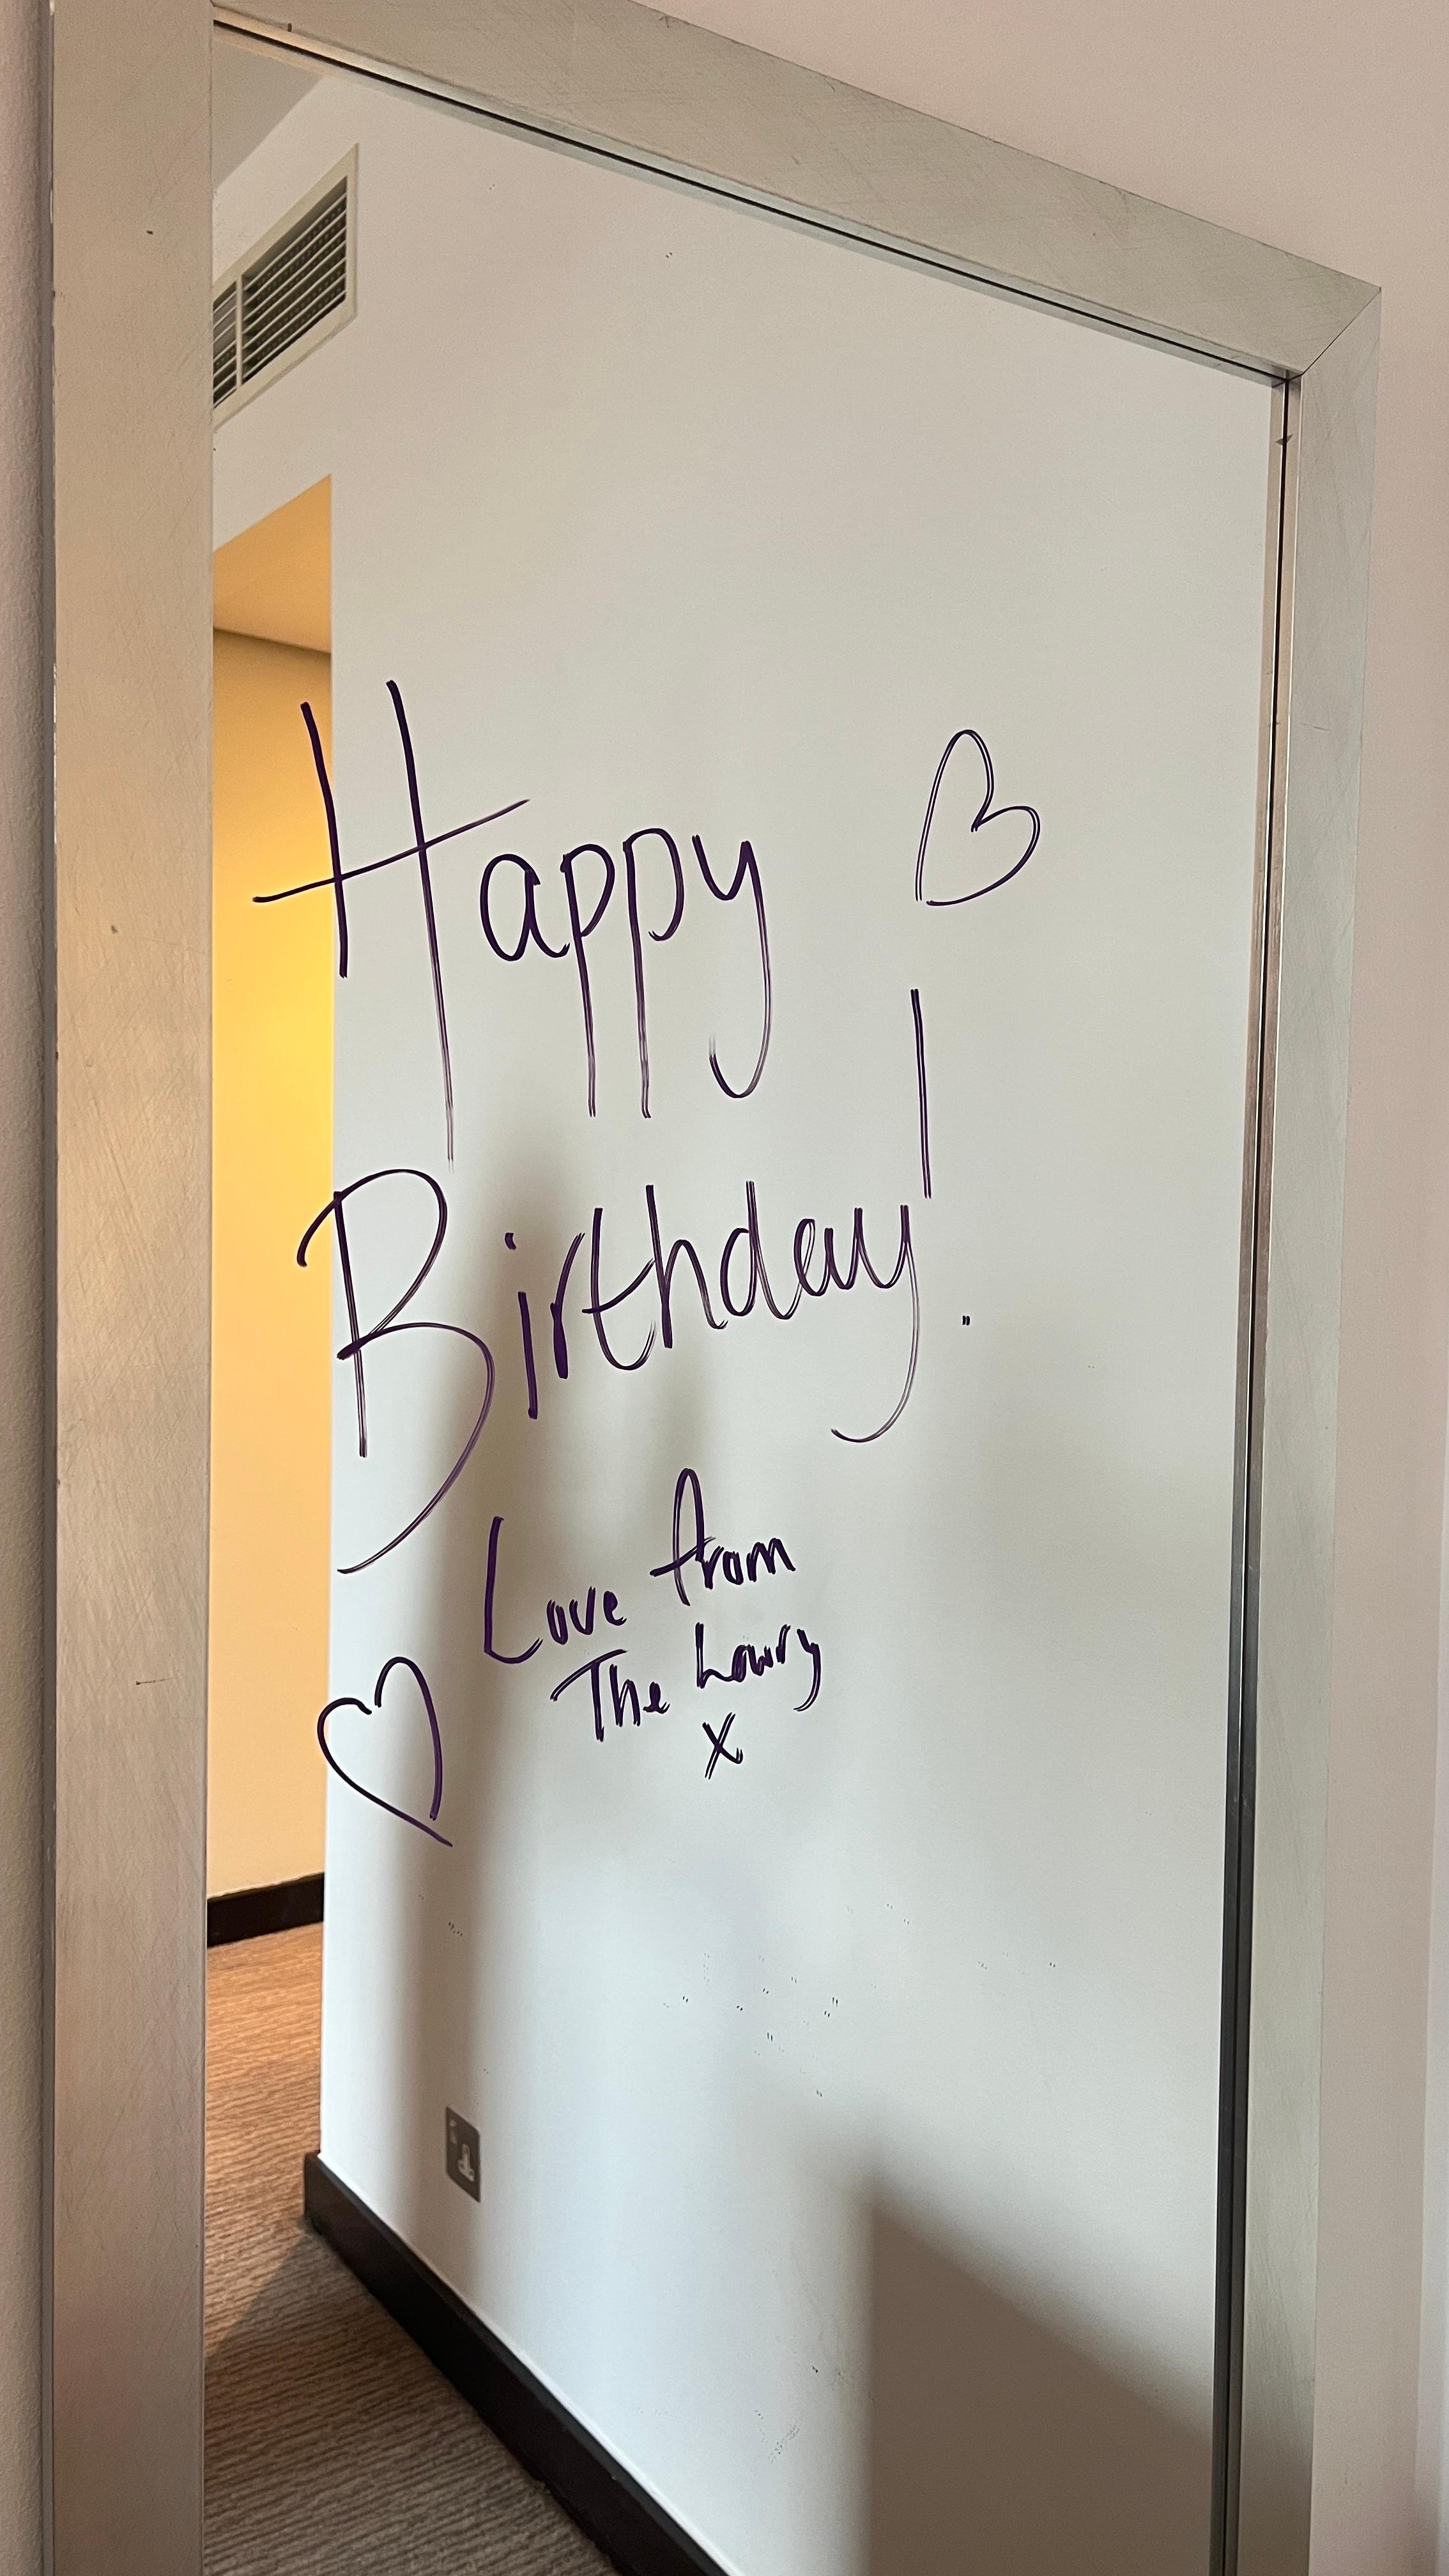 Happy
Birthday!
Love from
The Lowry
x